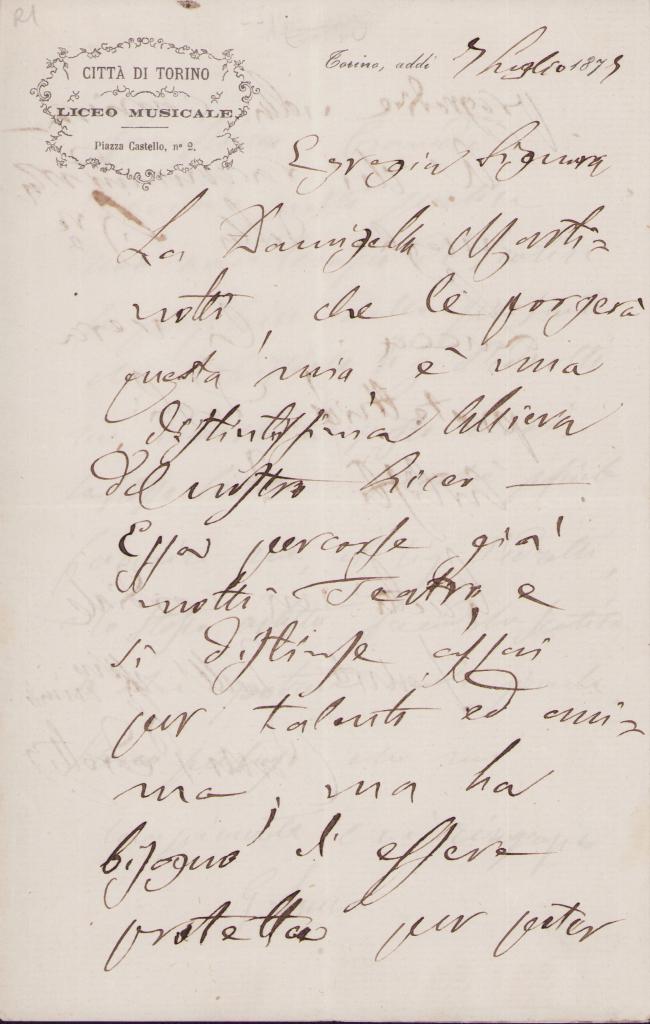 R1
CITTÀ DI TORINO
LICEO MUSICALE
Piazza Castello, nº 2.
Torino, addì 7 Luglio 1875
Egregia Signora
La Damigella Marti-
notti, che le porgerà
questa mia, è una
distintissima Allieva
del nostro Liceo —
Essa percorse già
molti Teatri, e
si distinse assai
per talenti ed ani-
ma, ma ha
bisogno di essere
protetta per poter